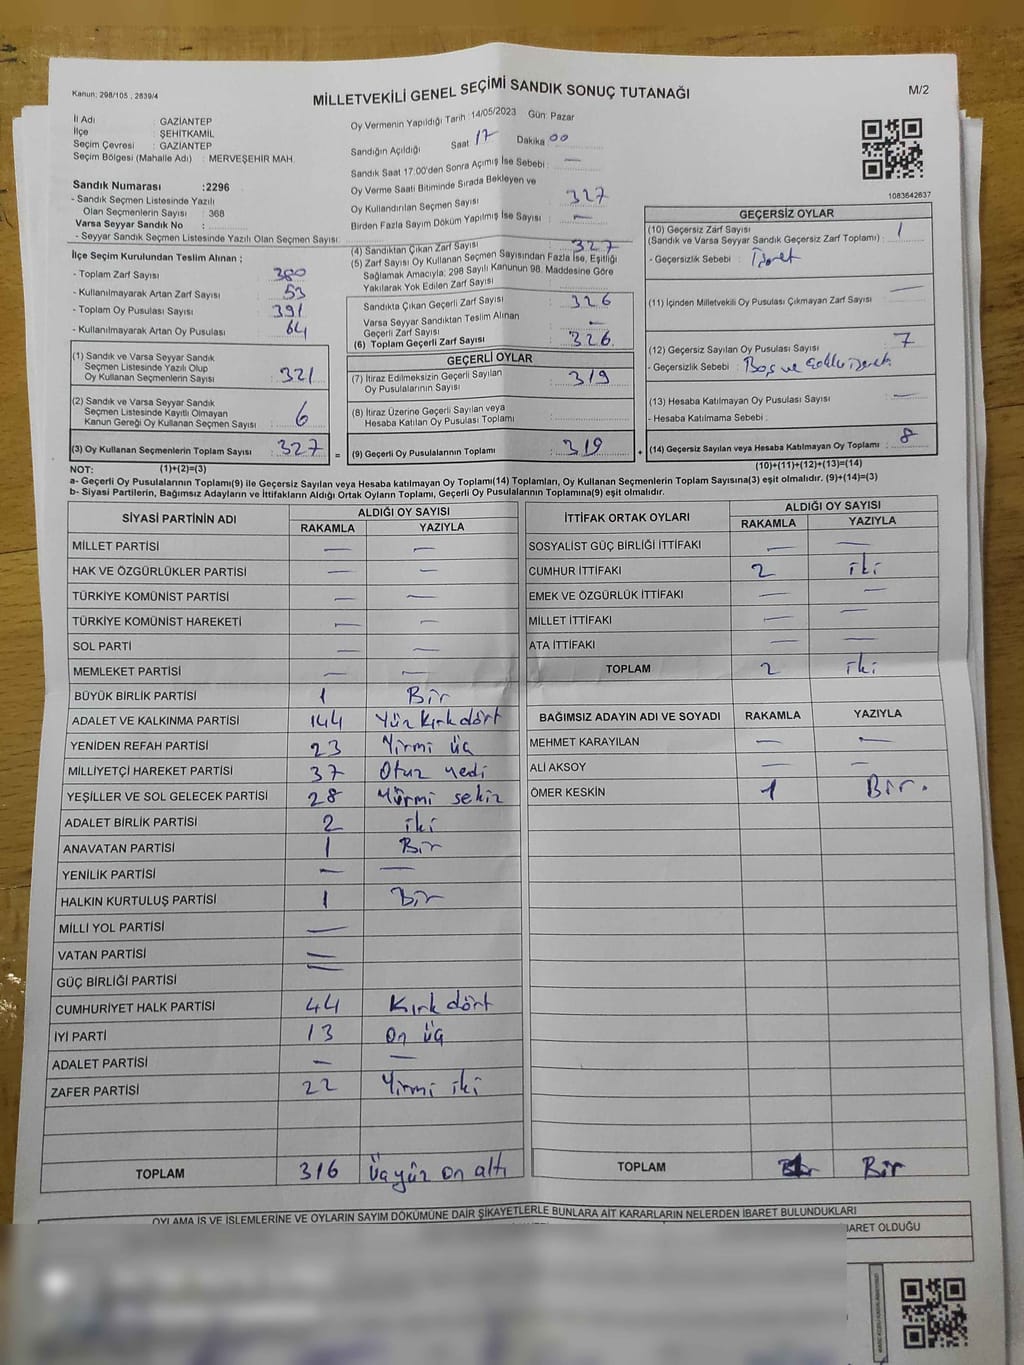 Kanun: 298/105 , 2839/4
MİLLETVEKİLİ GENEL SEÇİMİ SANDIK SONUÇ TUTANAĞI
M/2
İl Adı : GAZİANTEP
İlçe : ŞEHİTKAMİL
Seçim Çevresi : GAZİANTEP
Seçim Bölgesi (Mahalle Adı) : MERVEŞEHİR MAH.
Sandık Numarası :2296
- Sandık Seçmen Listesinde Yazılı
Olan Seçmenlerin Sayısı : 368
Varsa Seyyar Sandık No :
- Seyyar Sandık Seçmen Listesinde Yazılı Olan Seçmen Sayısı:
Oy Vermenin Yapıldığı Tarih :14/05/2023 Gün: Pazar
Sandığın Açıldığı Saat 17 Dakika 00
Sandık Saat 17:00'den Sonra Açımış İse Sebebi : —
Oy Verme Saati Bitiminde Sırada Bekleyen ve
Oy Kullandırılan Seçmen Sayısı : 327
Birden Fazla Sayım Döküm Yapılmış İse Sayısı : —
1083642637
İlçe Seçim Kurulundan Teslim Alınan ;
- Toplam Zarf Sayısı : 380
- Kullanılmayarak Artan Zarf Sayısı : 53
- Toplam Oy Pusulası Sayısı : 391
- Kullanılmayarak Artan Oy Pusulası : 64
(1) Sandık ve Varsa Seyyar Sandık
Seçmen Listesinde Yazılı Olup
Oy Kullanan Seçmenlerin Sayısı : 321
(2) Sandık ve Varsa Seyyar Sandık
Seçmen Listesinde Kayıtlı Olmayan
Kanun Gereği Oy Kullanan Seçmen Sayısı : 6
(3) Oy Kullanan Seçmenlerin Toplam Sayısı : 327 =
(4) Sandıktan Çıkan Zarf Sayısı : 327
(5) Zarf Sayısı Oy Kullanan Seçmen Sayısından Fazla İse, Eşitliği
Sağlamak Amacıyla; 298 Sayılı Kanunun 98. Maddesine Göre
Yakılarak Yok Edilen Zarf Sayısı :
Sandıkta Çıkan Geçerli Zarf Sayısı : 326
Varsa Seyyar Sandıktan Teslim Alınan
Geçerli Zarf Sayısı : —
(6) Toplam Geçerli Zarf Sayısı : 326
GEÇERLİ OYLAR
(7) İtiraz Edilmeksizin Geçerli Sayılan
Oy Pusulalarının Sayısı : 319
(8) İtiraz Üzerine Geçerli Sayılan veya
Hesaba Katılan Oy Pusulası Toplamı :
(9) Geçerli Oy Pusulalarının Toplamı : 319 +
GEÇERSİZ OYLAR
(10) Geçersiz Zarf Sayısı
(Sandık ve Varsa Seyyar Sandık Geçersiz Zarf Toplamı) : 1
- Geçersizlik Sebebi : İşaret
(11) İçinden Milletvekili Oy Pusulası Çıkmayan Zarf Sayısı : —
(12) Geçersiz Sayılan Oy Pusulası Sayısı : 7
- Geçersizlik Sebebi : Boş ve
(13) Hesaba Katılmayan Oy Pusulası Sayısı : —
- Hesaba Katılmama Sebebi :
(14) Geçersiz Sayılan veya Hesaba Katılmayan Oy Toplamı : 8
NOT: (1)+(2)=(3)
(10)+(11)+(12)+(13)=(14)
a- Geçerli Oy Pusulalarının Toplamı(9) ile Geçersiz Sayılan veya Hesaba katılmayan Oy Toplamı(14) Toplamları, Oy Kullanan Seçmenlerin Toplam Sayısına(3) eşit olmalıdır. (9)+(14)=(3)
b- Siyasi Partilerin, Bağımsız Adayların ve İttifakların Aldığı Ortak Oyların Toplamı, Geçerli Oy Pusulalarının Toplamına(9) eşit olmalıdır.
SİYASİ PARTİNİN ADI ALDIĞI OY SAYISI
RAKAMLA YAZIYLA
MİLLET PARTİSİ — —
HAK VE ÖZGÜRLÜKLER PARTİSİ — —
TÜRKİYE KOMÜNİST PARTİSİ — —
TÜRKİYE KOMÜNİST HAREKETİ — —
SOL PARTİ — —
MEMLEKET PARTİSİ — —
BÜYÜK BİRLİK PARTİSİ 1 Bir
ADALET VE KALKINMA PARTİSİ 144 Yüz kırk dört
YENİDEN REFAH PARTİSİ 23 Yirmi üç
MİLLİYETÇİ HAREKET PARTİSİ 37 Otuz yedi
YEŞİLLER VE SOL GELECEK PARTİSİ 28 Yirmi sekiz
ADALET BİRLİK PARTİSİ 2 iki
ANAVATAN PARTİSİ 1 Bir
YENİLİK PARTİSİ — —
HALKIN KURTULUŞ PARTİSİ 1 Bir
MİLLİ YOL PARTİSİ —
VATAN PARTİSİ —
GÜÇ BİRLİĞİ PARTİSİ —
CUMHURİYET HALK PARTİSİ 44 Kırk dört
İYİ PARTİ 13 On üç
ADALET PARTİSİ — —
ZAFER PARTİSİ 22 Yirmi iki
TOPLAM 316 üçyüz on altı
İTTİFAK ORTAK OYLARI ALDIĞI OY SAYISI
RAKAMLA YAZIYLA
SOSYALİST GÜÇ BİRLİĞİ İTTİFAKI — —
CUMHUR İTTİFAKI 2 iki
EMEK VE ÖZGÜRLÜK İTTİFAKI — —
MİLLET İTTİFAKI — —
ATA İTTİFAKI — —
TOPLAM 2 iki
BAĞIMSIZ ADAYIN ADI VE SOYADI RAKAMLA YAZIYLA
MEHMET KARAYILAN — —
ALİ AKSOY — —
ÖMER KESKİN 1 Bir.
TOPLAM 1 Bir
OYLAMA İŞ VE İŞLEMLERİNE VE OYLARIN SAYIM DÖKÜMÜNE DAİR ŞİKAYETLERLE BUNLARA AİT KARARLARIN NELERDEN İBARET BULUNDUKLARI
İBARET OLDUĞU